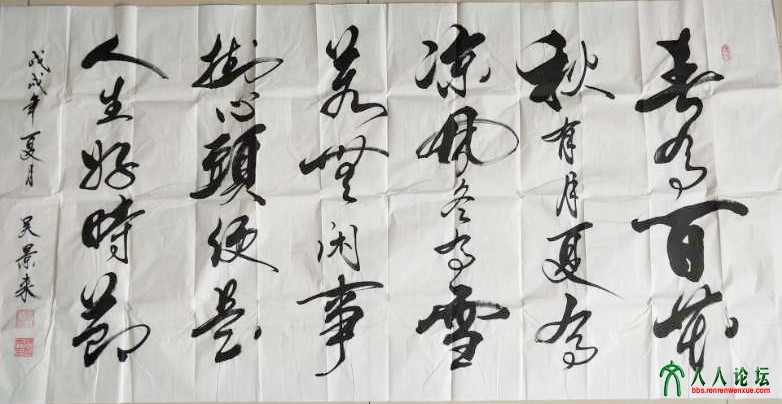 春有百花
秋有月夏有
涼風冬有雪
若無闲事
掛心頭便是
人生好時節
戊戌年夏月 吴景來
人人论坛
bbs.renrenwenxue.com